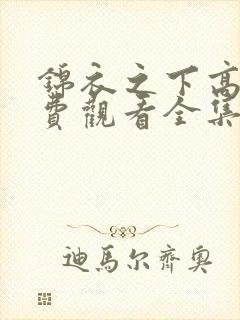 錦衣之下高
費觀看全集
迪馬尔齊奧